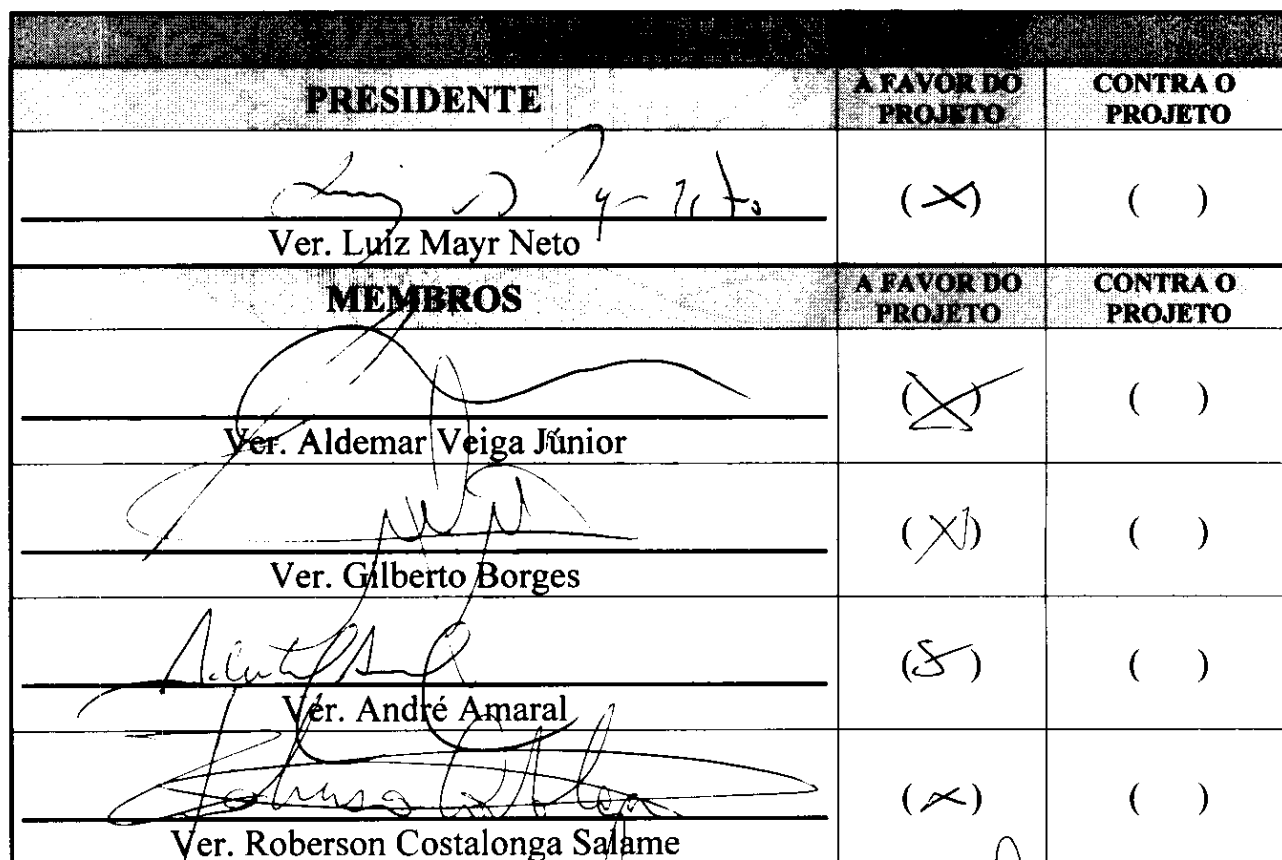 PRESIDENTE
A FAVOR DO PROJETO
CONTRA O PROJETO
(X)
( )
Ver. Luiz Mayr Neto
MEMBROS
A FAVOR DO PROJETO
CONTRA O PROJETO
(X)
( )
Ver. Aldemar Veiga Júnior
(X)
( )
Ver. Gilberto Borges
( )
Ver. André Amaral
(X)
( )
Ver. Roberson Costalonga Salame